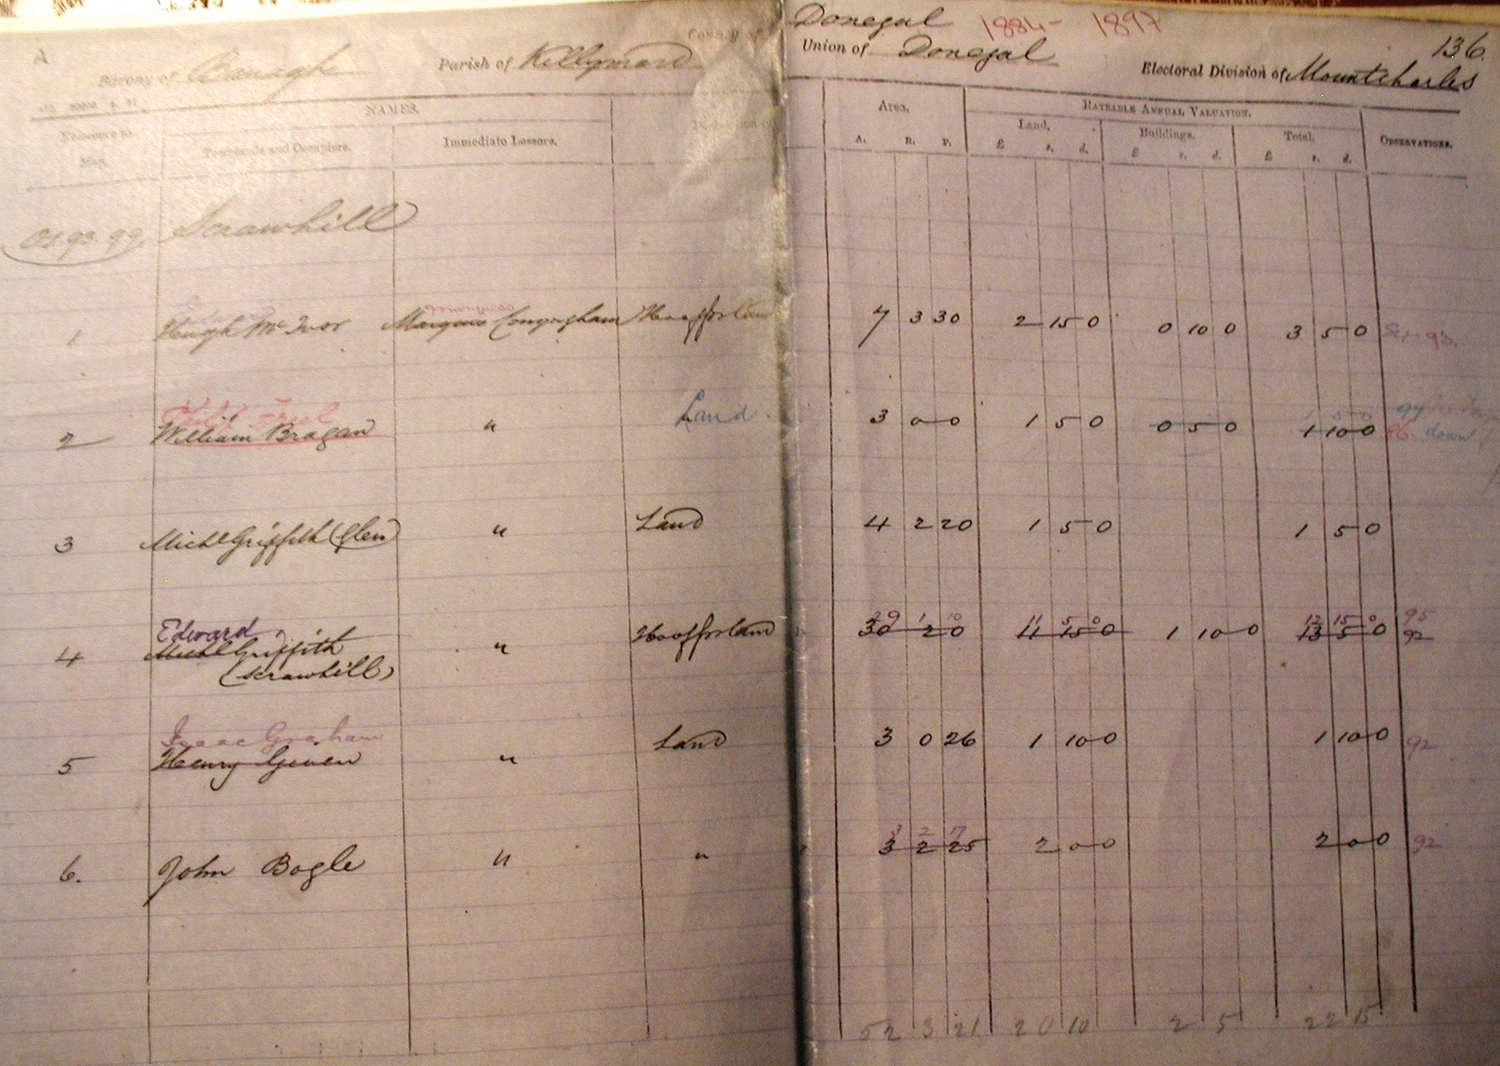 A
County of Donegal 1884 - 1897
136
Barony of Banagh Parish of Killymard Union of Donegal Electoral Division of Mountcharles
NAMES. Area. RATEABLE ANNUAL VALUATION.
Reference to Map. Townlands and Occupiers. Immediate Lessors. Land. Buildings. Total. OBSERVATIONS.
A. R. P. £ s. d. £ s. d. £ s. d.
OS. 93. 99. Scrawhill
1 Hugh McIvor Marquis Conyngham Ho off & land 7 3 30 2 15 0 0 10 0 3 5 0 93.
1 5 0 94
2 William Bragan " Land 3 0 0 1 5 0 0 5 0 1 10 0 86 down
3 Michl Griffith (Glen) " Land 4 2 20 1 5 0 1 5 0
Edward 29 1 10 11 5 0 12 15 0 95
4 Michl Griffith " Ho off & land 30 20 11 15 0 1 10 0 13 5 0 92
(Scrawhill)
Isaac Graham
5 Henry Given " Land 3 0 26 1 10 0 1 10 0 92
3 2 17
6. John Bogle " " 3 2 25 2 0 0 2 0 0 92
52 3 21 20 10 2 5 22 15